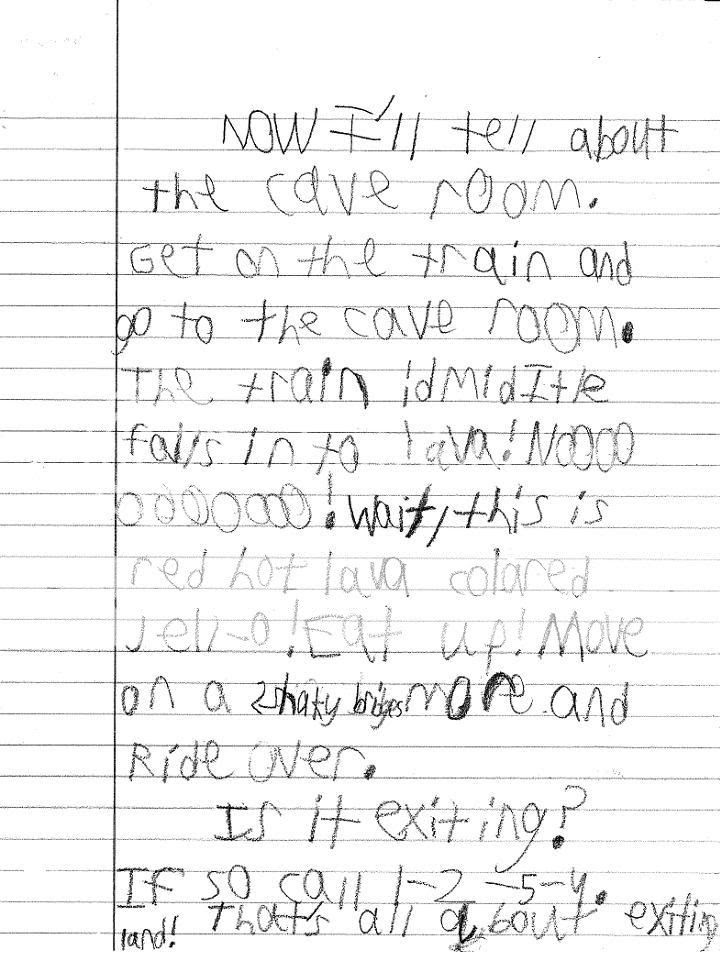 NOW I'll tell about
the cave room.
Get on the train and
go to the cave room.
The train idmidItle
falls in to lava! Noooo
oooooooo! Wait, this is
red hot lava colared
Jell-o! Eat up! Move
on a 2 shaky bridges more and
Ride over.
Is it exiting?
IF so call 1-2-5-4.
That's all about exiting
land!